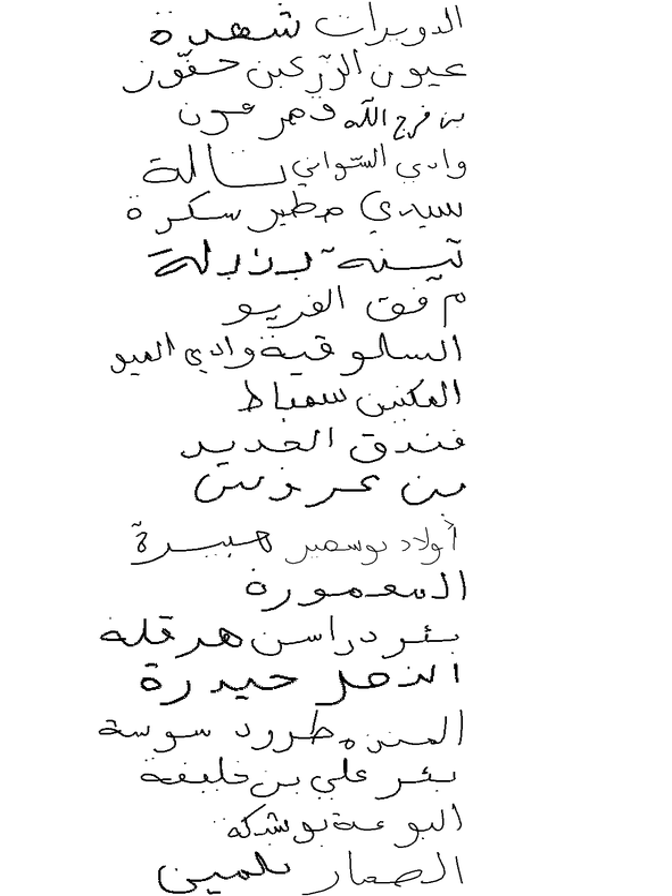 الدويرات شهدة
عيون الزركين حفوز
بن فرج الله وهر قون
وادي السواني تالة
سيدي مطير سكرة
تيسنه بذبلة
م فق الفريو
السلوقية وادي الميو
المكنين سمباط
فندق الحديد
بن عروس
أولاد بوسمير هبيرة
المعمورة
بئر دراسن هرقلة
حيدرة
المنزه طرود سوسة
بئر علي بن خليفة
البوعة بوشركة
الصمار بلمين